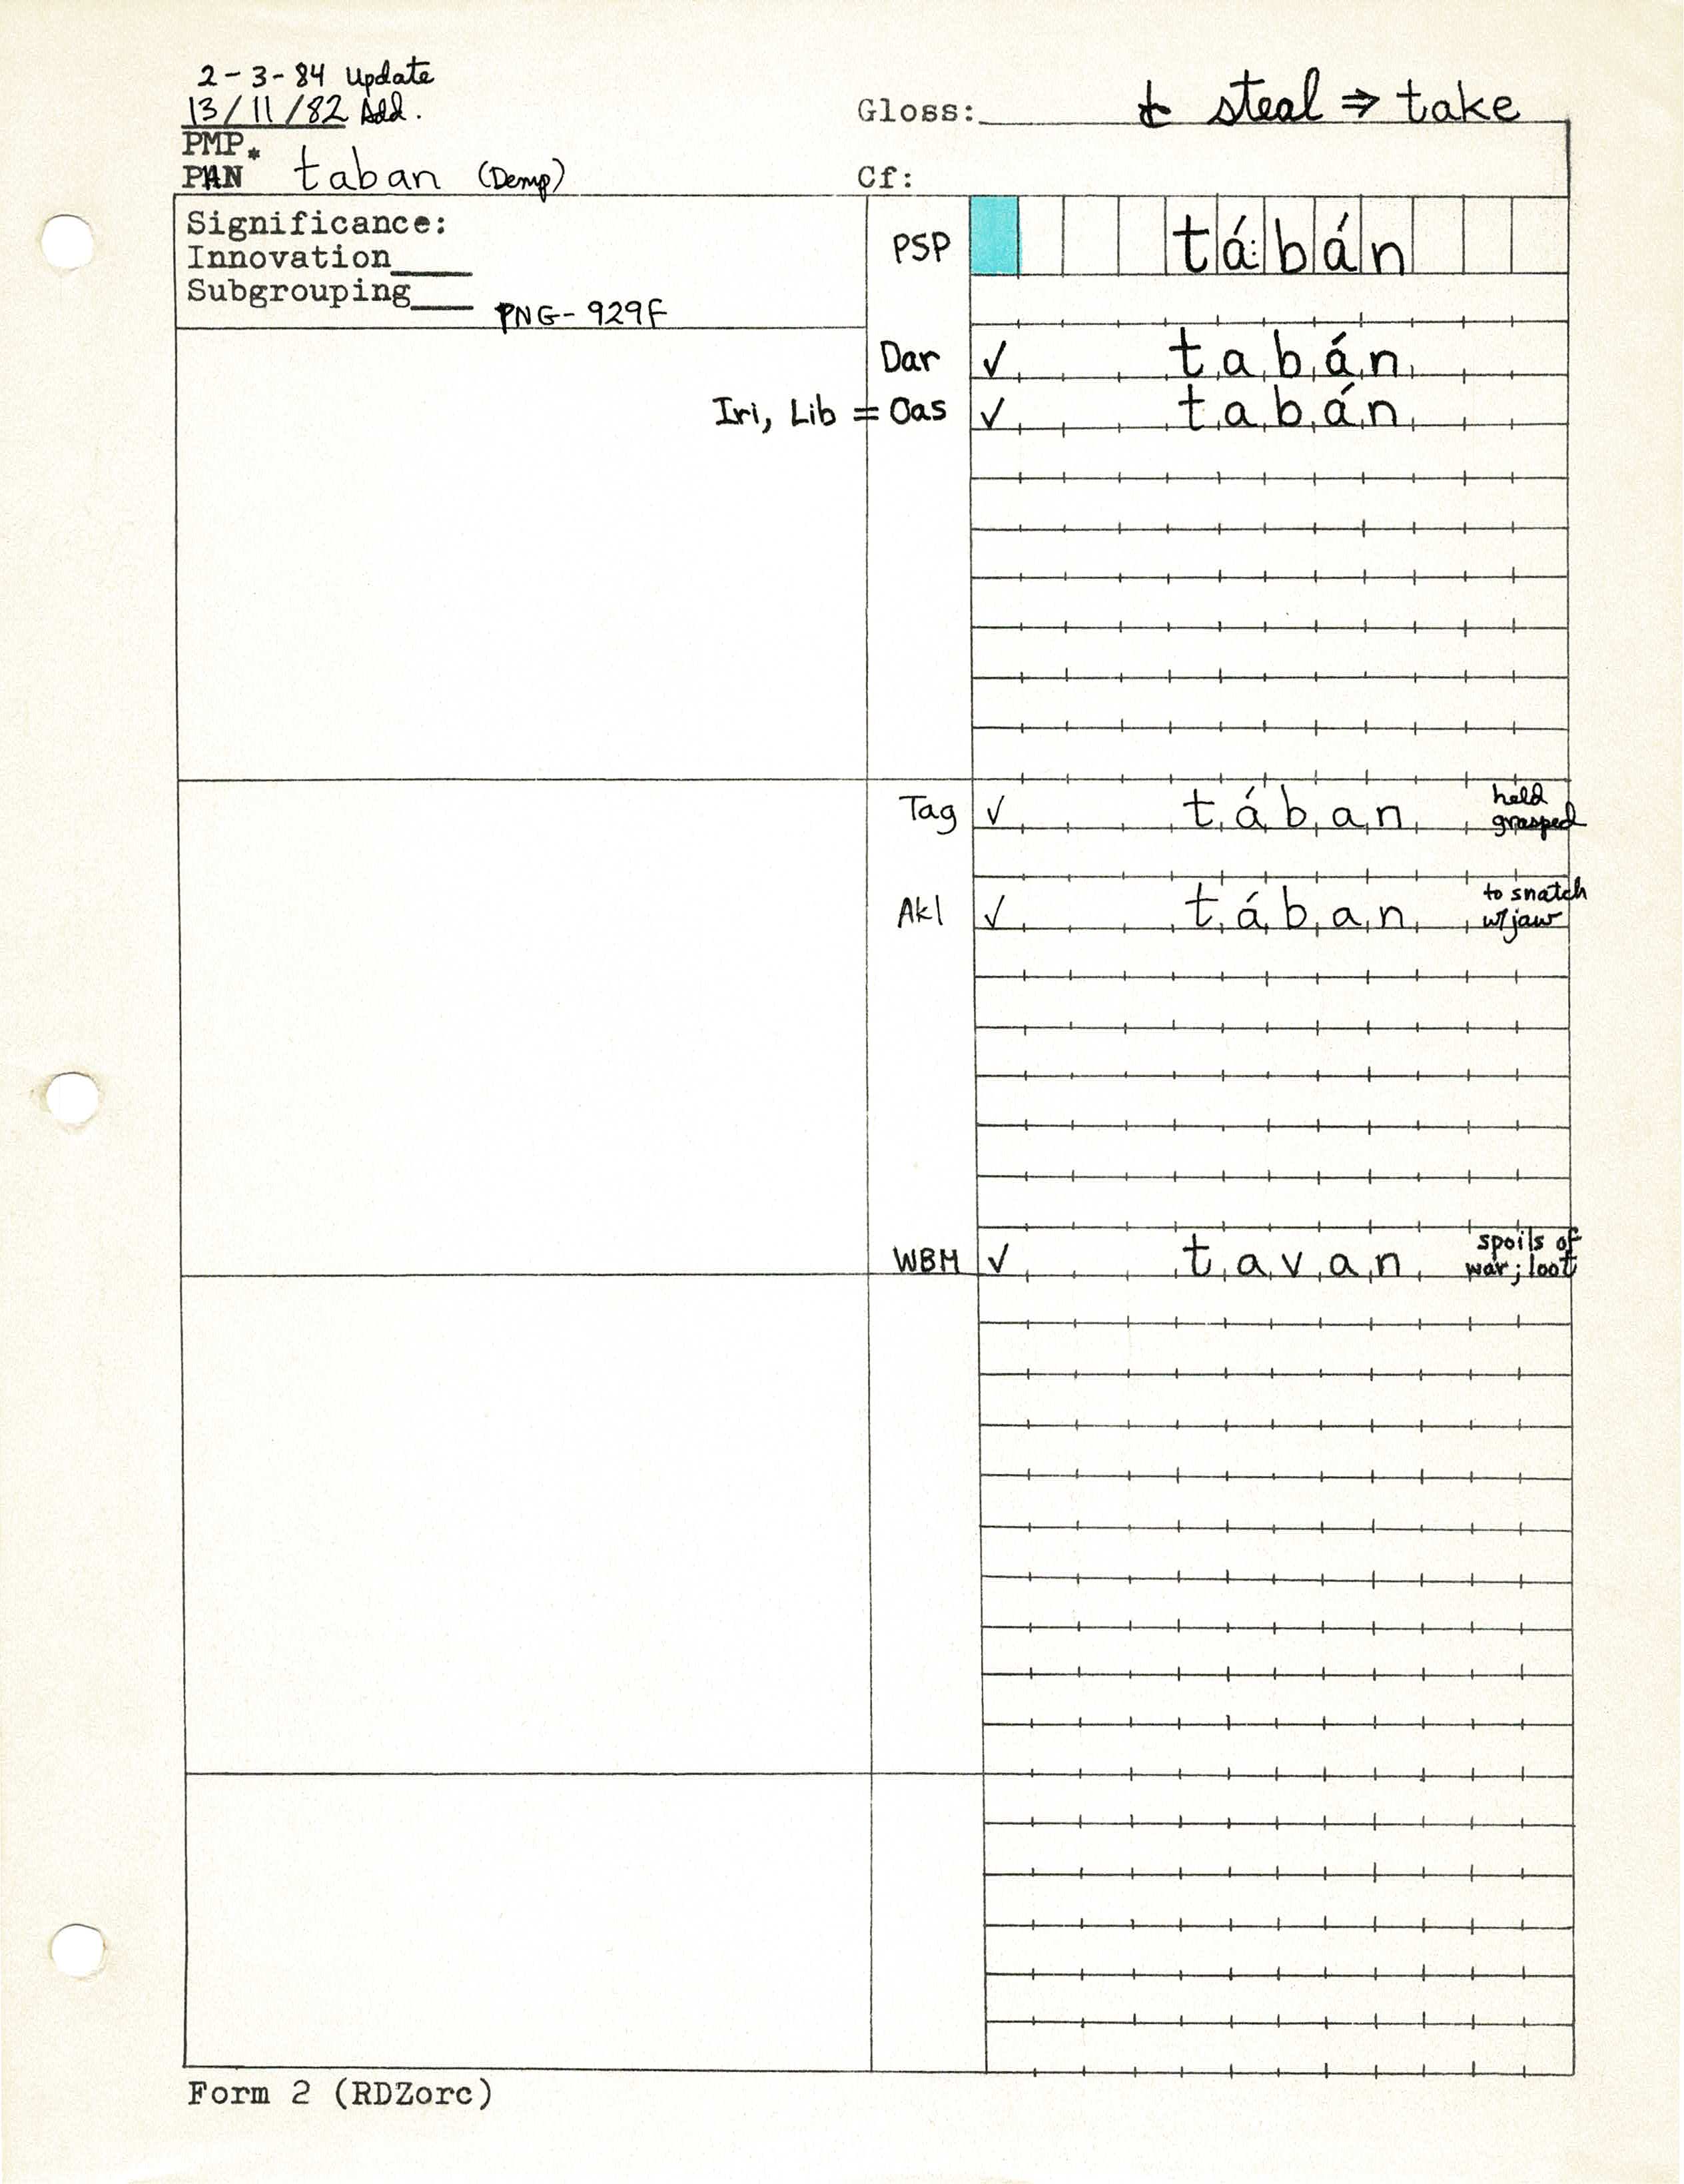 2-3-84 Update
13/11/82 Add.
Gloss: t steal ⇒ take
PMP *
PAN taban (Demp)
Cf:
Significance:
Innovation____
Subgrouping____ PNG-929F
PSP tá:bán
Dar ✓ tabán
Iri, Lib = Oas ✓ tabán
Tag ✓ tában held grasped
Akl ✓ tában to snatch w/jaw
WBM ✓ tavan spoils of war; loot
Form 2 (RDZorc)